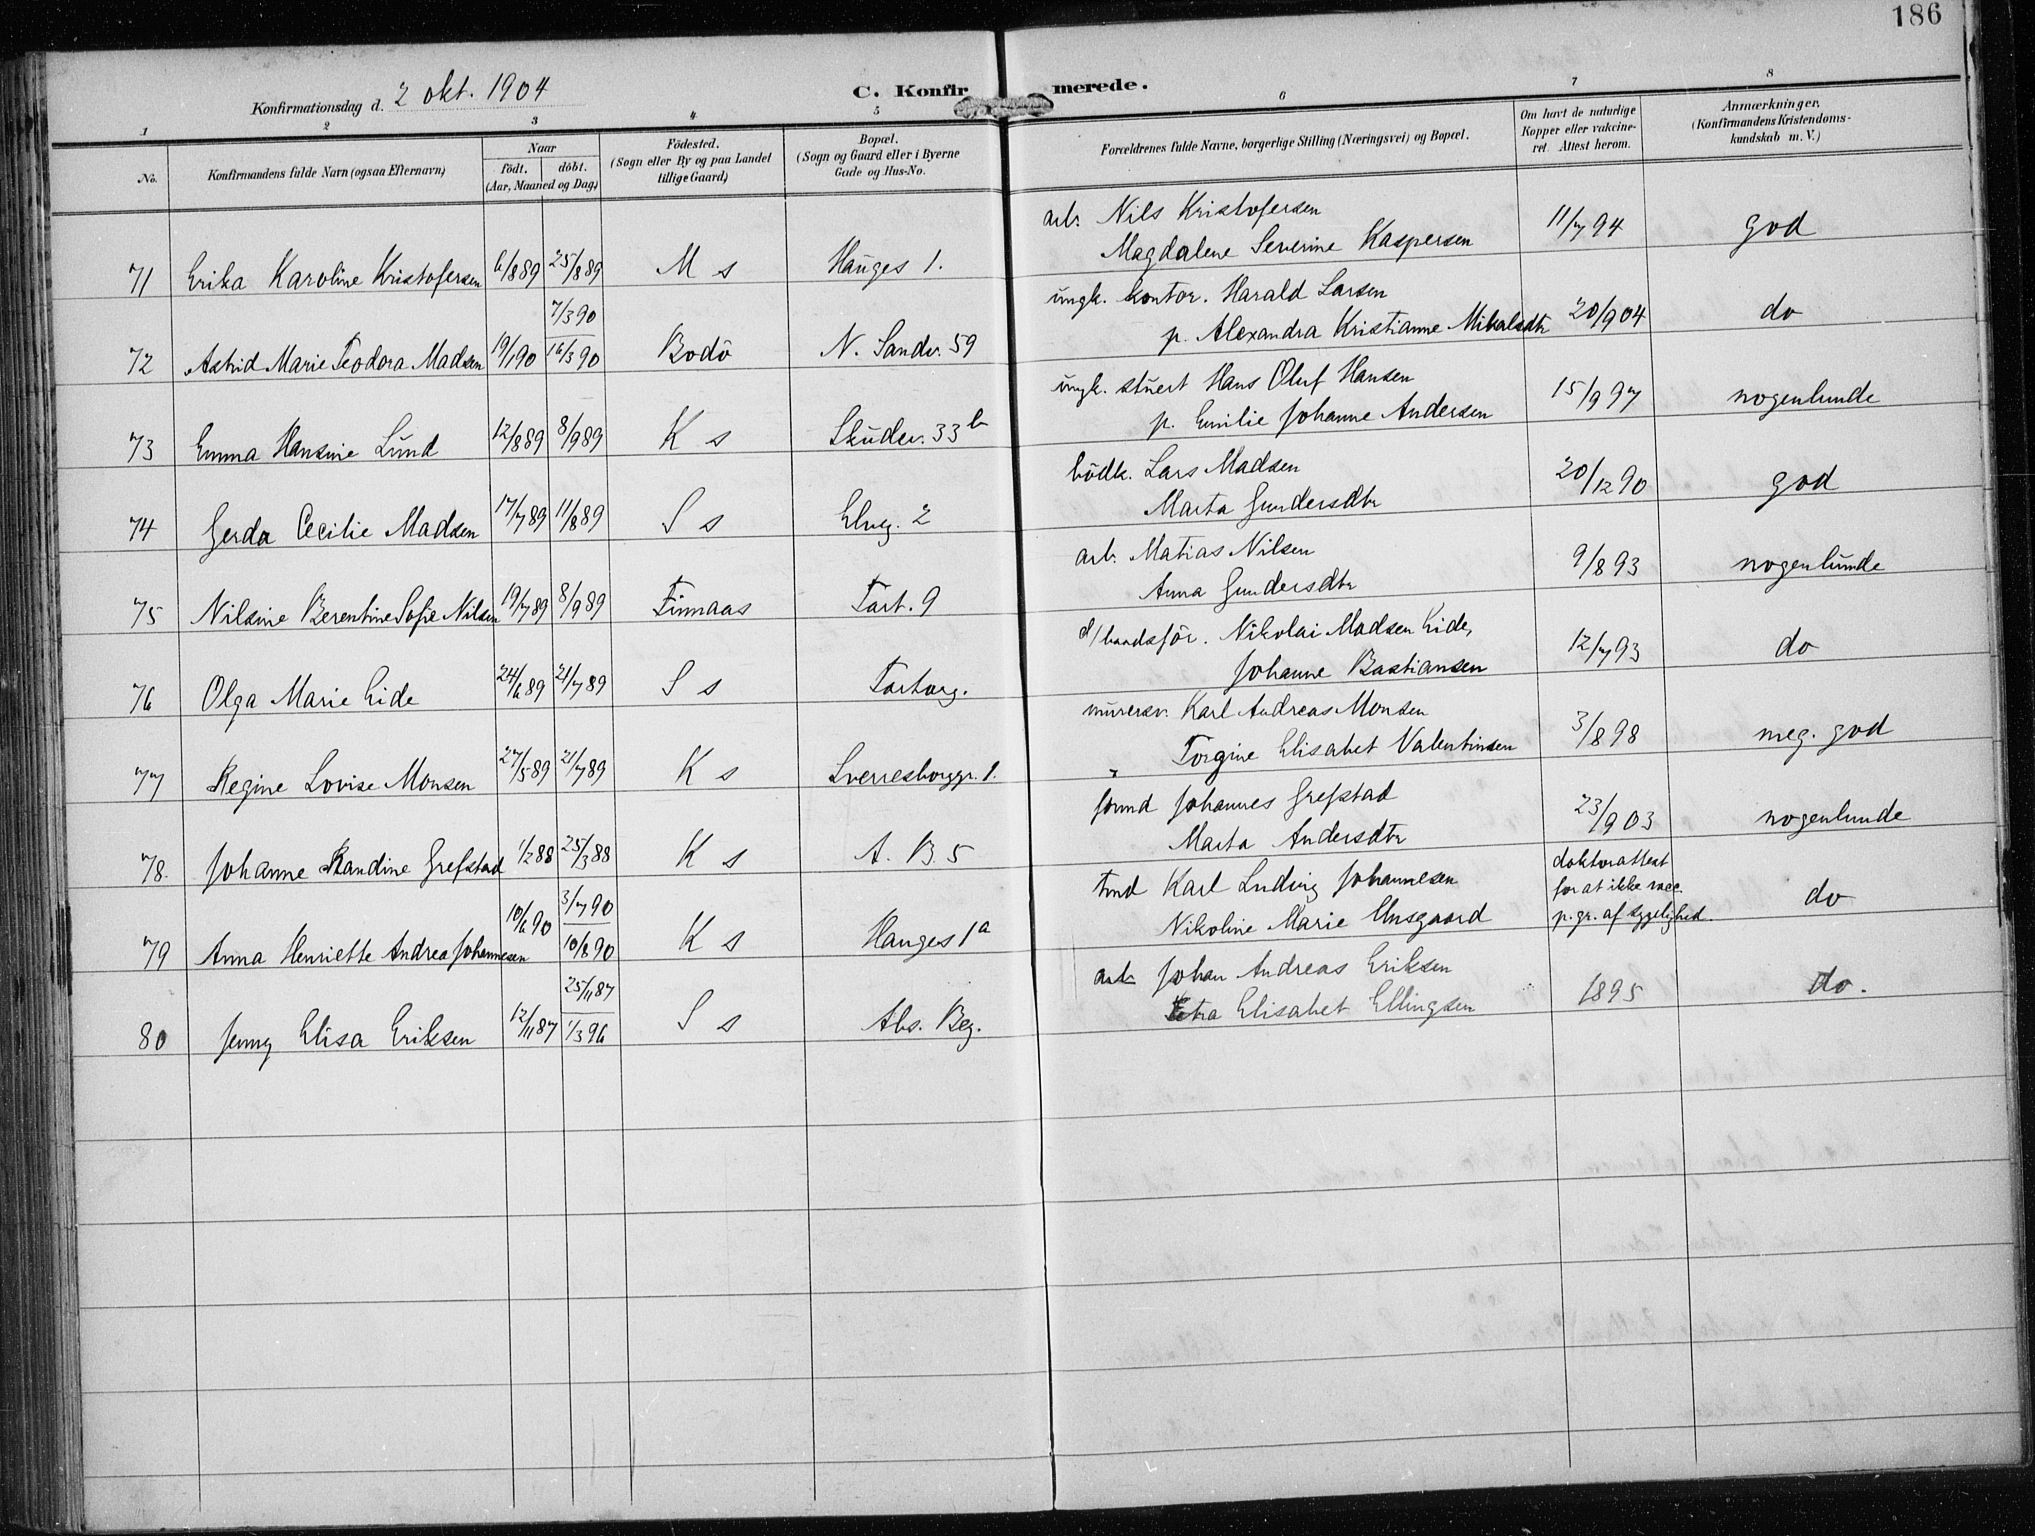 186
Konfirmationsdag d. 2 okt. 1904
C. Konfirmerede.
1 2 3 4 5 6 7 8
No. Konfirmandens fulde Navn (ogsaa Efternavn) Naar født. døbt. (Aar, Maaned og Dag) Fødested. (Sogn eller By og paa Landet tillige Gaard) Bopæl. (Sogn og Gaard eller i Byerne Gade og Hus-No. Forældrenes fulde Navne, borgerlige Stilling (Næringsvei) og Bopæl. Om havt de naturlige Kopper eller vakcineret. Attest herom. Anmærkninger. (Konfirmandens Kristendomskundskab m. V.)
arb. Nils Kristofersen
71 Erika Karoline Kristofersen 6/8 89 25/8 89 M s Hauges 1. Magdalene Severine Kaspersen 11/7 94 god
7/3 90 ungk. kontor. Harald Larsen
72 Astrid Marie Teodora Madsen 19/1 90 16/3 90 Bodö N. Sandv. 59 p. Alexandra Kristianne Mikalsdtr 20/9 04 do
ungk. stuert Hans Oluf Hansen
73 Emma Hansine Lund 12/8 89 8/9 89 K s Skudev. 33 b p. Emilie Johanne Andersen 15/9 97 nogenlunde
bödk. Lars Madsen
74 Gerda Cecilie Madsen 17/7 89 11/8 89 S s Elveg. 2 Marta Gundersdtr 20/12 90 god
arb. Matias Nilsen
75 Nilsine Berentine Sofie Nilsen 19/7 89 8/9 89 Finnaas Tart. 9 Anna Gundersdtr 9/8 93 nogenlunde
d/baadsför. Nikolai Madsen Eide,
76 Olga Marie Eide 24/6 89 21/7 89 S s Johanne Bastiansen 12/7 93 do
murersv. Karl Andreas Monsen
77 Regine Lovise Monsen 27/5 89 21/7 89 K s Sverresborggr. 1. Torgine Elisabet Valentinsen 3/8 98 meg. god
formd Johannes Grefstad
78. Johanne Randine Grefstad 1/2 88 25/3 88 K s A. B. 5 Marta Andersdtr 23/9 03 nogenlunde
3/7 90 Karl Ludvig Johannesen doktorattest for at ikke vacc. p. gr. af sygelighed.
79 Anna Henriette Andrea Johannesen 10/6 90 10/8 90 K s Hauges 1 a Nikoline Marie do
25/11 87 arb Johan Andreas Eriksen
80 Jenny Elisa Eriksen 12/11 87 1/3 96 S s Abs. Beg. Petra Elisabet Ellingsen 1895 do.